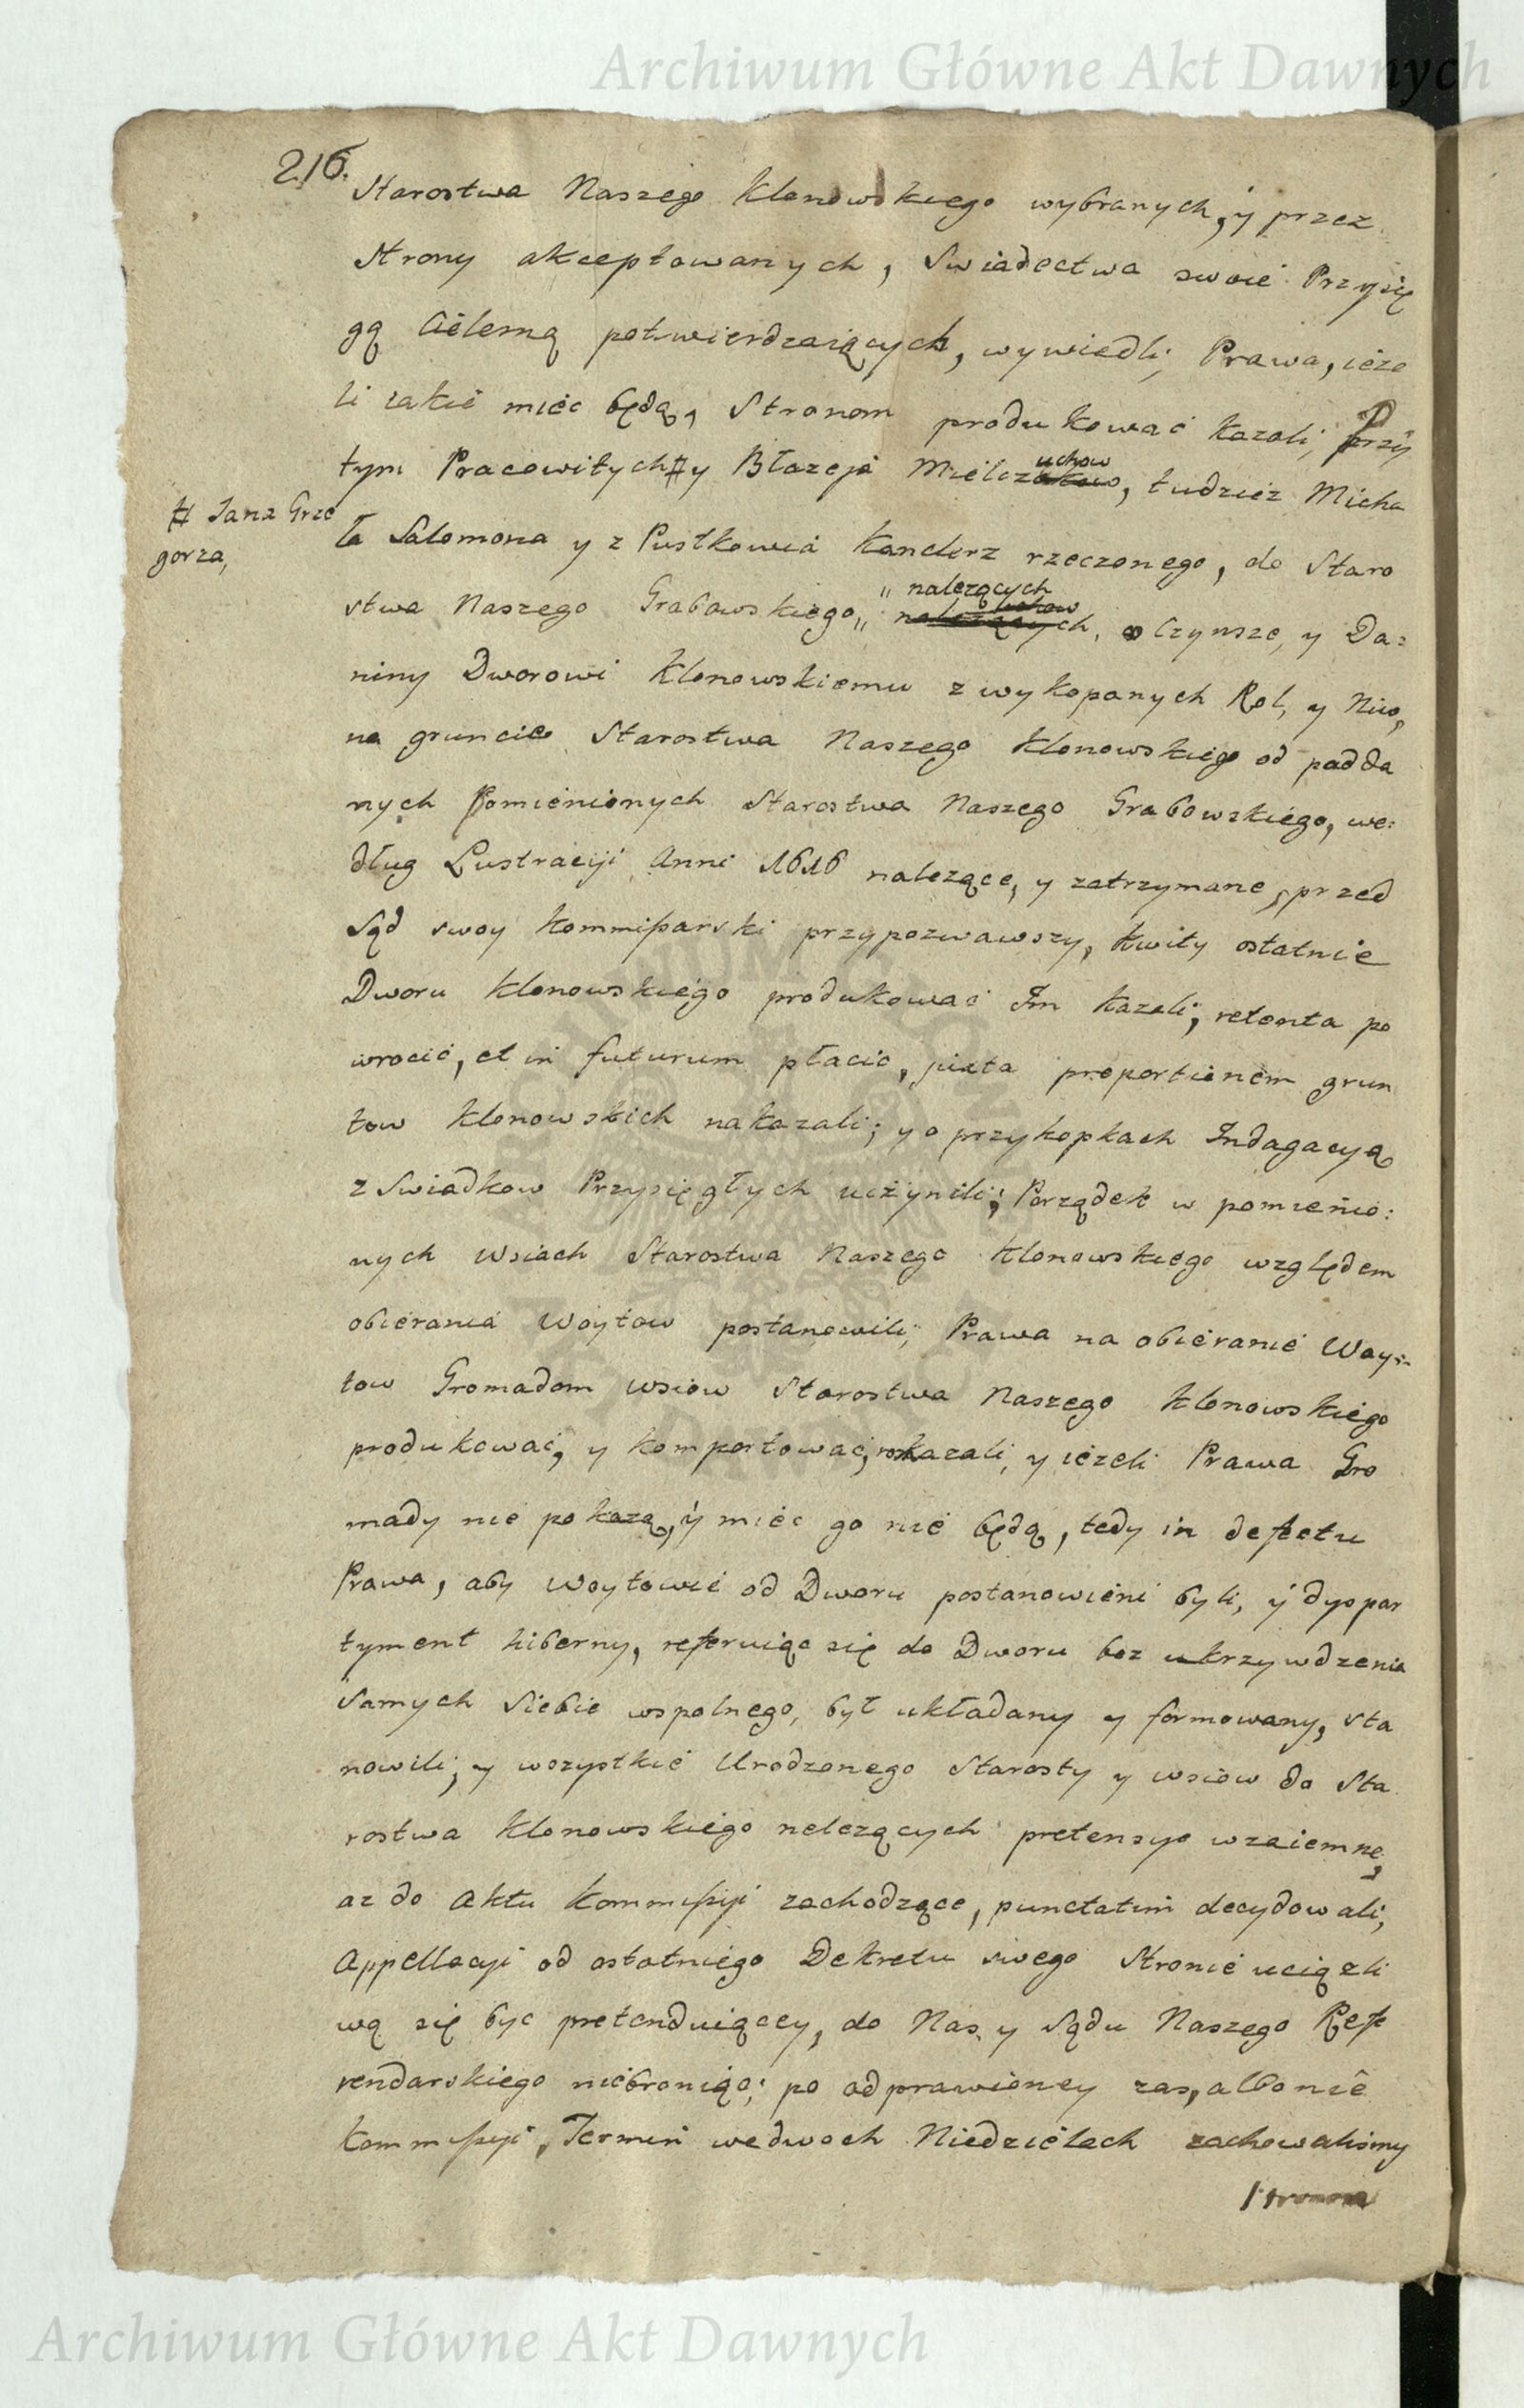 Archiwum Główne Akt Dawnych
216.
Starostwa Naszego Klonowskiego wybranych, y przez
strony akceptowanych, Swiadectwa swoie Przysię
gą Cielesną potwierdzaiących, wywiedli; Prawa, ieże
li iakie miec będą, Stronom produkować kazali; Przy
tym Pracowitych # y Błazeja Mielcz uchow, tudziez Micha
# Jana Grze
gorza,
ła Salomona y z Pustkowia Kanclerz rzeczonego, do Staro
stwa Naszego Grabowskiego " należących, o Czynsze, y Da:
niny Dworowi Klonowskiemu z wykopanych Rol, y Niw,
na gruncie Starostwa Naszego Klonowskiego od podda
nych Pomienionych Starostwa Naszego Grabowskiego, we:
dług Lustracyi Anni 1616 nalezące, y zatrzymane, przed
Sąd swoy Kommissarski przypozwawszy, kwity ostatnie
Dworu Klonowskiego produkować Im kazali; retenta po
wrocić, et in futurum płacic, juxta proportionem grun
tow Klonowskich nakazali; y o przykopkach Indagacyą
z Swiadkow Przysięgłych uczynili; Porządek w pomienio:
nych Wsiach Starostwa Naszego Klonowskiego względem
obierania Woytow postanowili; Prawa na obieranie Woy:
tow Gromadom Wsiow Starostwa Naszego Klonowskiego
produkować, y komportować, rozkazali, y iezeli Prawa Gro
mady nie pokazą, y miec go nie będą, tedy in defectu
Prawa, aby Woytowie od Dworu postanowieni byli, y dyspar
tyment hiberny, referuiąc się do Dworu bez ukrzywdzenia
Samych Siebie wspolnego, był układany y formowany, sta
nowili; y wszystkie Urodzonego Starosty y wsiow do Sta
rostwa Klonowskiego nalezących pretensye wzaiemne,
az do Aktu Kommissyi zachodzące, punctatim decydowali,
Appellacyi od ostatniego Dekretu swego Stronie uciązli
wą się byc pretenduiącey, do Nas y Sądu Naszego Refe
rendarskiego niebroniąc; po odprawioney zas, albo nie
Kommissyi, Termin we dwoch Niedzielach zachowalismy
Stronom
Archiwum Główne Akt Dawnych